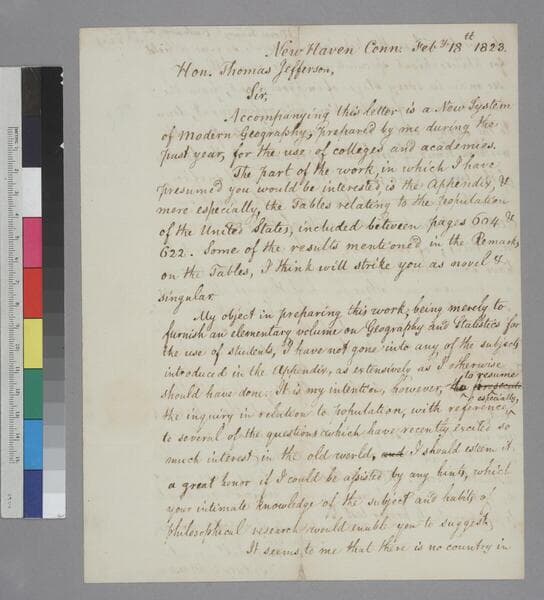 New Haven Conn. Feby. 13th 1823.
Hon. Thomas Jefferson,
Sir,
Accompanying this letter is a New System
of Modern Geography, prepared by me during the
past year, for the use of colleges and academies.
The part of the work, in which I have
presumed you would be interested is the Appendix, &
more especially, the Tables relating to the population
of the United States, included between pages 604 &
622. Some of the results mentioned in the Remarks
on the Tables, I think will strike you as novel &
singular.
My object in preparing this work, being merely to
furnish an elementary volume on Geography and Statistics for
the use of students, I have not gone into any of the subjects
introduced in the Appendix, as extensively as I otherwise
should have done. It is my intention, however, to resume
the inquiry in relation to population, with reference, especially,
to several of the questions which have recently excited so
much interest in the old world, and I should esteem it
a great honor if I could be assisted by any hints, which
your intimate knowledge of the subject and habits of
philosophical research would enable you to suggest.
It seems to me that there is no country in